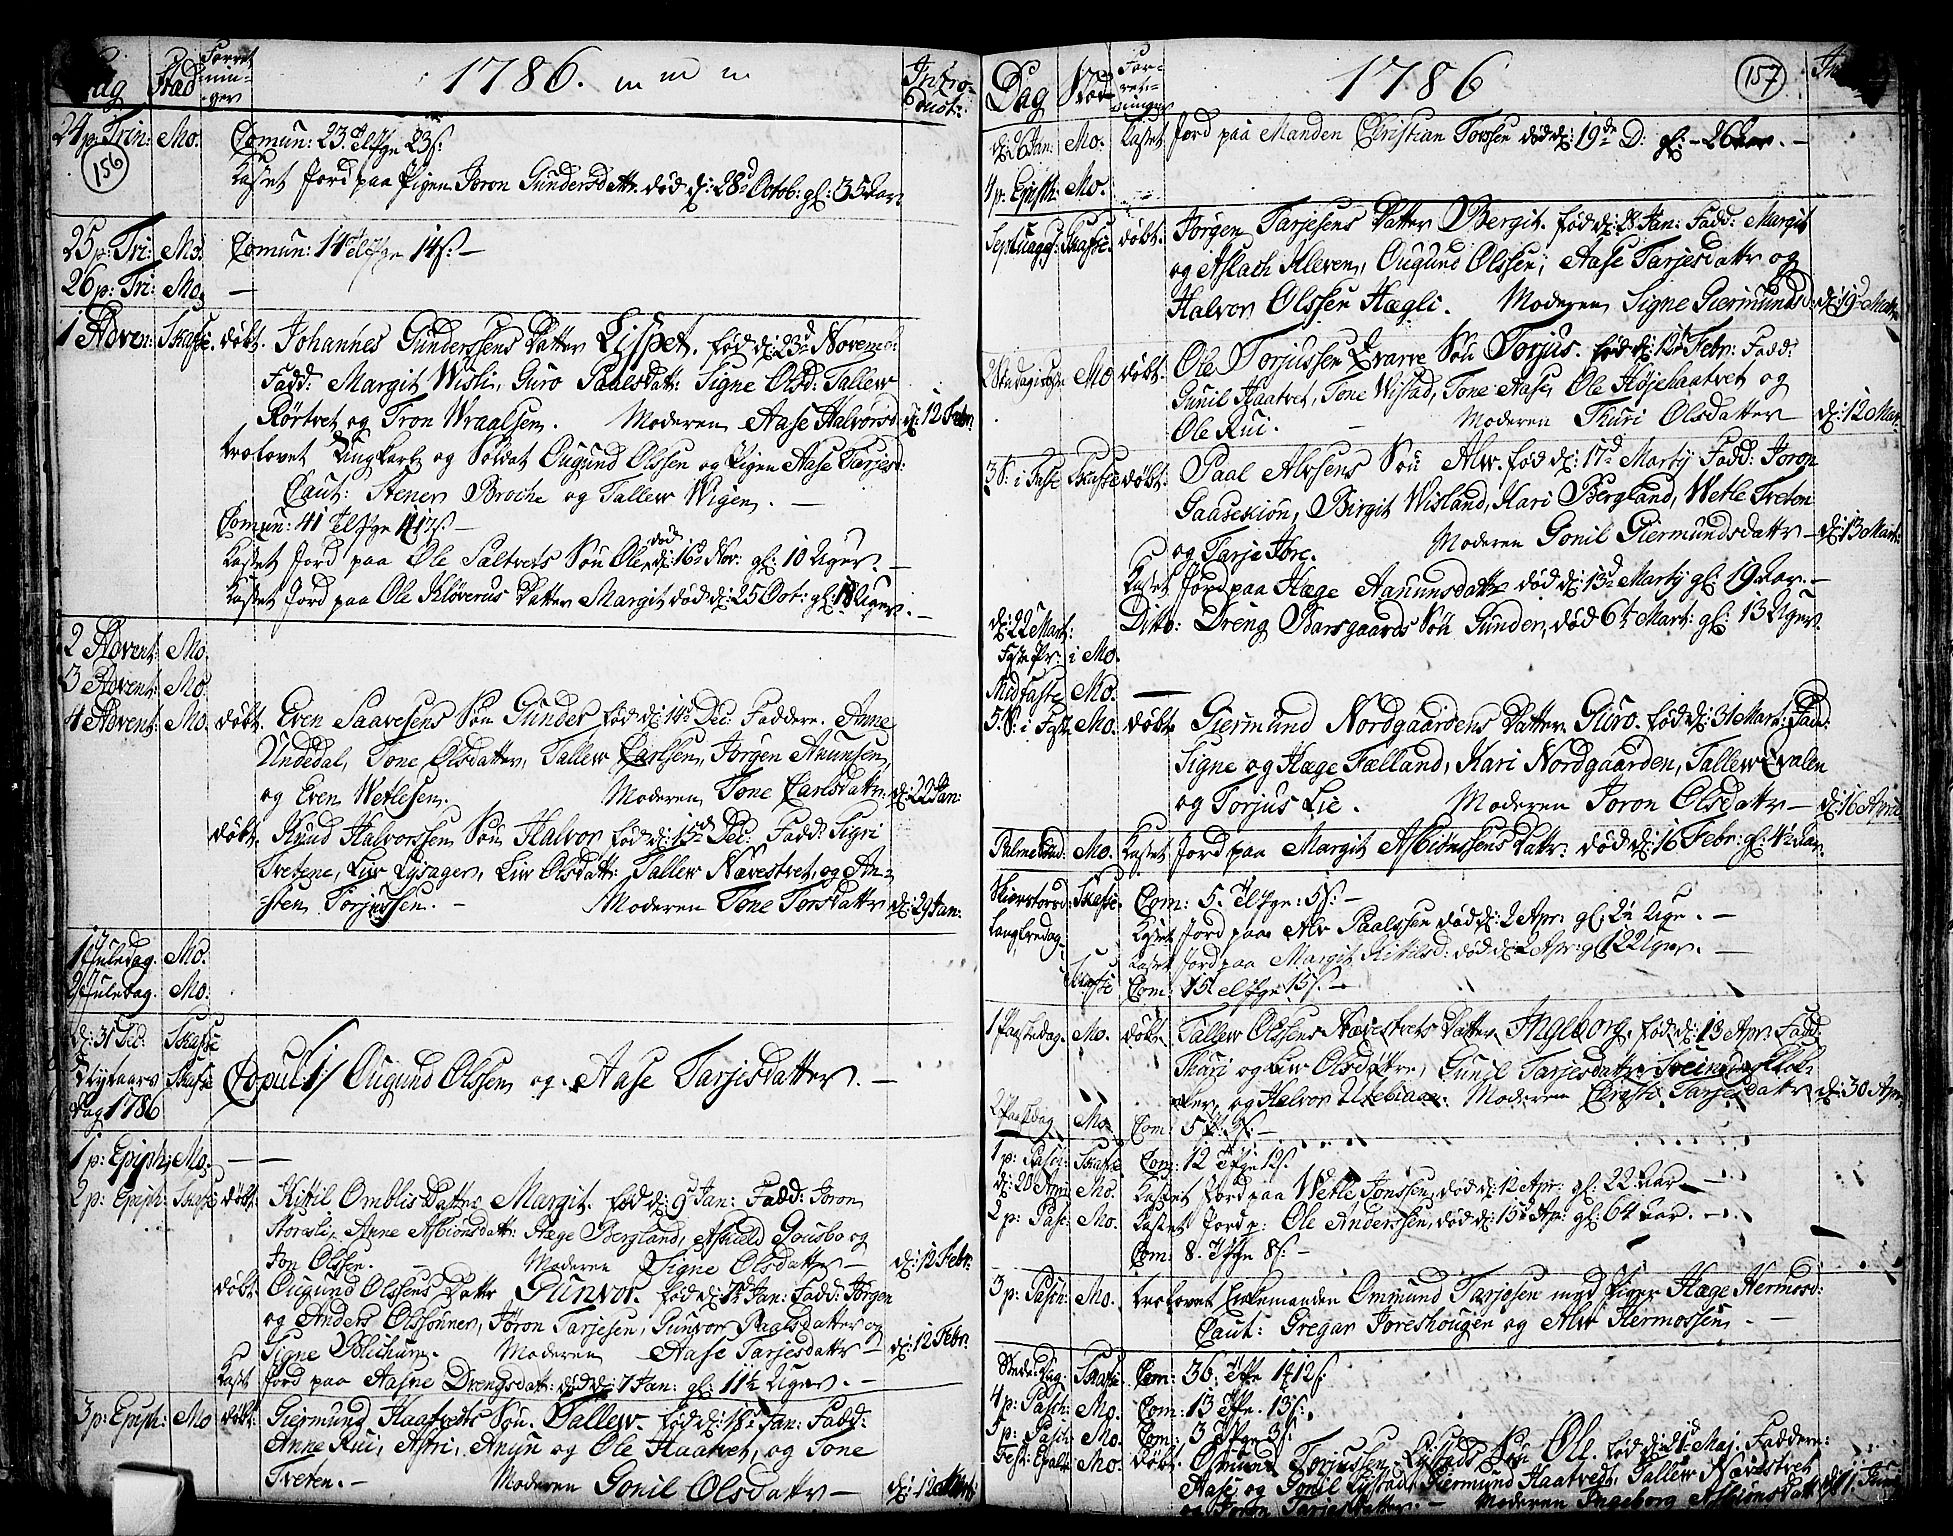 Dag Stad Forret-nin-ger 1786. Intro-duct:
24 p: Trin: Mo. Comun: 23. Telfge 23 s:
156
Kastet Jord paa Pigen Joron Gundersdattr. død d: 28d Octob: gl: 35 Aar
25 p: Tri: Mo. Comun: 14 Telfge 14 s. –
26 p: Tri: Mo. –
1 Adven: Skafse. døbt. Johannes Gunderssens Datter Lispet. fød d: 23d Novemb:
Fadd: Margit Wisli, Guro Paalsdatt: Signe Olsd: Tallew
Rørtvet og Tron Wraalsen. Moderen Aase Halvorsd d: 12 Febr.
trolovet Ungkarl og Soldat Ougund Olssen og Pigen Aase Tarjesd:
Caut: Stener Broche og Tallew Wigen. –
Comun: 41 Telfge
Kastet Jord paa Ole Saltvets Søn Ole, død d: 16d Nov: gl: 10 Uger. –
Kastet Jord paa Ole Kløverus Datter Margit død d: 25 Oct: gl: 18 Uger. –
2 Advent: Mo.
3 Advent: Mo.
4 Advent: Mo. døbt. Even Saavesens Søn Gunder fød d: 14d Dec: Faddere. Anne
Undedal, Tone Olsdatter, Tallew Carlssen, Jørgen Anunsen,
og Even Wetlesen. Moderen Tone Carlsdattr: d: 22 Jan:
døbt. Knud Halvorssen Søn Halvor fød d: 15de Dec: Fadd: Sigri
Tvetene, Liv Lysager, Liv Olsdatt: Tallew Nævestvet, og An-
sten Torjussen. – Moderen Tone Torsdattr d: 29 Jan:
1 Juledag. Mo.
2 Juledag. Mo:
d: 31 Dec: Skafse
Nytaars Skafse Copul: Ougund Olssen og Aase Tarjesdatter. –
dag 1786
1 p: Epiph: Mo. – –
2 p: Epiph: Skafse døbt. Kittil Omblis Datter Margit. fød d: 9d Jan: Fadd: Joron
Storesli, Anne Asbionsdatt: Hæge Bergland, Askield Gousbo og
Jon Olssen. – Moderen Signe Olsdatter – d: 12 Febr.
døbt. Ougund Olssens Dattr Gunvor. fød d: Jan: Fadd: Jørgen
og Anders Olssønner, Joron Tarjesen, Gunvor Paalsdatter og
Signe Moderen Aase Tarjesdattr – d: 12 Febr:
Kast Jord paa Aasne Drengsdatt: død d: 7 Jan: gl: 11½ Uger. –
3 p: Epiph: Mo døbt: Giermund Haatvedts Søn. Tallew. fød d: Jan: Fadd:
Anne Rui, Astri, Anun og Ole Haatvet, og Tone
Tveten. – Moderen Gonil Olsdattr – d: 12
Dag Stæd For-ret-ninger 1786 157
d: 26 Jan: Mo. Kastet Jord paa Manden Christian Torssen død d: 19de D: gl: – 26 Aar. –
4 p: Epiph: Mo.
Septuages: Skafse. døbt. Jørgen Tarjesens Datter Bergit. fød d: 28 Jan: Fadd: Margit
og Aslach Kleven, Ougund Olssen, Aase Tarjesdattr og
Halvor Olssen Hægli. Moderen Signe Giermundsd: d: 19d Mart:
Mo døbt. Ole Torjussen Qvarve Søn Torjus. fød d: 12t Febr: Fadd:
Gunil Haatvet, Tone Wistad, Tone Aase, Ole Højehaatvet og
Ole Rui. – Moderen Thuri Olsdatter – d: 12 Mar:
3 S: i Faste Skafse døbt: Paal Alvsens Søn Alw. fød d: 17d Martij Fadd: Joron
Gaaseskiøn, Birgit Wisland, Kari Bergland, Wetle Tveton
og Tarje Jore. Moderen Gonil Giermundsdattr – d: 13 Mart:
Kastet Jord paa Hæge Aanunsdattr død d: 13d Martij gl: 19 Aar. –
d: 22 Mart: Dito: Dreng Barsgaards Søn Gunder, død 6t Mart: gl: 13 Uger.
Faste Pr: i Mo.
Midfaste Mo. –
5. S: i Fast: Mo. døbt. Giermund Nordgaardens Datter Guro. fød d: 31 Mart: Fadd:
Signe og Hæge Fælland, Kari Nordgaarden, Tallew Qvalen
og Torjus Lie. Moderen Joron Olsdattr – d: 16 April
Palme Sønd: Mo. Kastet Jord paa Margit Asbiønssens Dattr: død d: 16 Febr: gl: 4½ Aar.
Skierstorsd: Skafse. Com: 5. Telfge: 5 s: –
Langfredag. Kastet Jord paa Alv Paalssen død d: 2 Apr: gl: 2½ Uge. –
Kastet Jord paa Margit Kittilsd: død d: 2 Apr: gl: 122 Uger. –
Skafse Com: 15 Telfge 15 s. –
1 Paaskedag. Mo. døbt. Tallew Olssens Nævestvets Datter Ingeborg. fød d: 13 Apr: Fadd:
Thuri og Liv Olsdøttre, Gunil Tarjesdattr, Sveinung
og Halvor Utebiaae. Moderen Christi Tarjesdattr d: 30 Apr:
2 Paaskdag Mo Com: 5 s: –
1 p: Pasch: Skafse Com: 12 Tfge 12 s.
d: 20 April Mo. Kastet Jord paa Wetle Jonssen, død d: 12 Apr: gl: 22 Aar. –
2 p: Pasc: Mo. Kastet Jord p: Ole Anderssen, død d: 15t Apr: gl: 64 Aar. –
Com: 8. Tfge 8 s: –
3 p: Pasch: Mo. trolovet Enkemanden Ommund Tarjesen med Pigen Hæge Hermosd:
Caut: Gregar Joreshougen og Alv Hermossen. –
Skafse Com: 36. Tfge
4 p: Pasch: Mo. Com: 13 Tfge 13 s.
5 p: Pasch: Mo. Com: 3 Tfge 3 s:
Mo: Døbt. Osmund Torjussen Lystads Søn Ole. fød d: 21d Maj. Faddere:
Aase og Gonil Lystad, Giermund Haatvedt, Tallew Nævestvet
Tarjesdatter. – Moderen Ingeborg Asbiønsdatt: